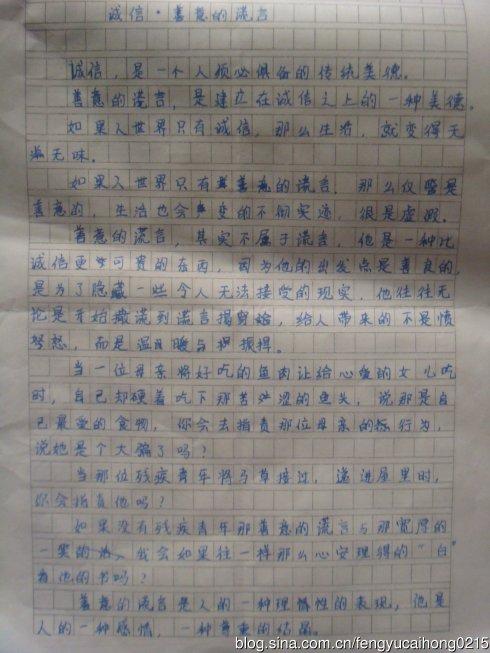 诚信·善意的谎言
诚信，是一个人须必俱备的传统美德。
善意的谎言，是建立在诚信之上的一种美德。
如果入世界只有诚信，那么生活，就变得无
滋无味。
如果入世界只有善意的谎言，那么仅管是
善意的，生活也会变的不彻实迹，很是虚假。
善意的谎言，其实不属于谎言，他是一种比
诚信更可贵的东西，因为他的出发点是善良的，
是为了隐藏一些令人无法接受的现实，他往往无
论是开始撒谎到谎言揭穿始，给人带来的不是愤
怒，而是温暖与振撑。
当一位母亲将好吃的鱼肉让给心爱的女儿吃
时，自己却硬着吃下那苦涩的鱼头，说那是自
己最爱的食物，你会去指责那位母亲的行为，
说她是个大骗了吗？
当那位残疾青年将草接过，递进屋里时，
你会指责他吗？
如果没有残疾青年那善意的谎言与那宽厚的
一笑的，我会如果往一样那么心安理得的“白”
看他的书吗？
善意的谎言是人的一种理性的表现，他是
人的一种感情，一种尊重的结晶。
blog.sina.com.cn/fengyucaihong0215